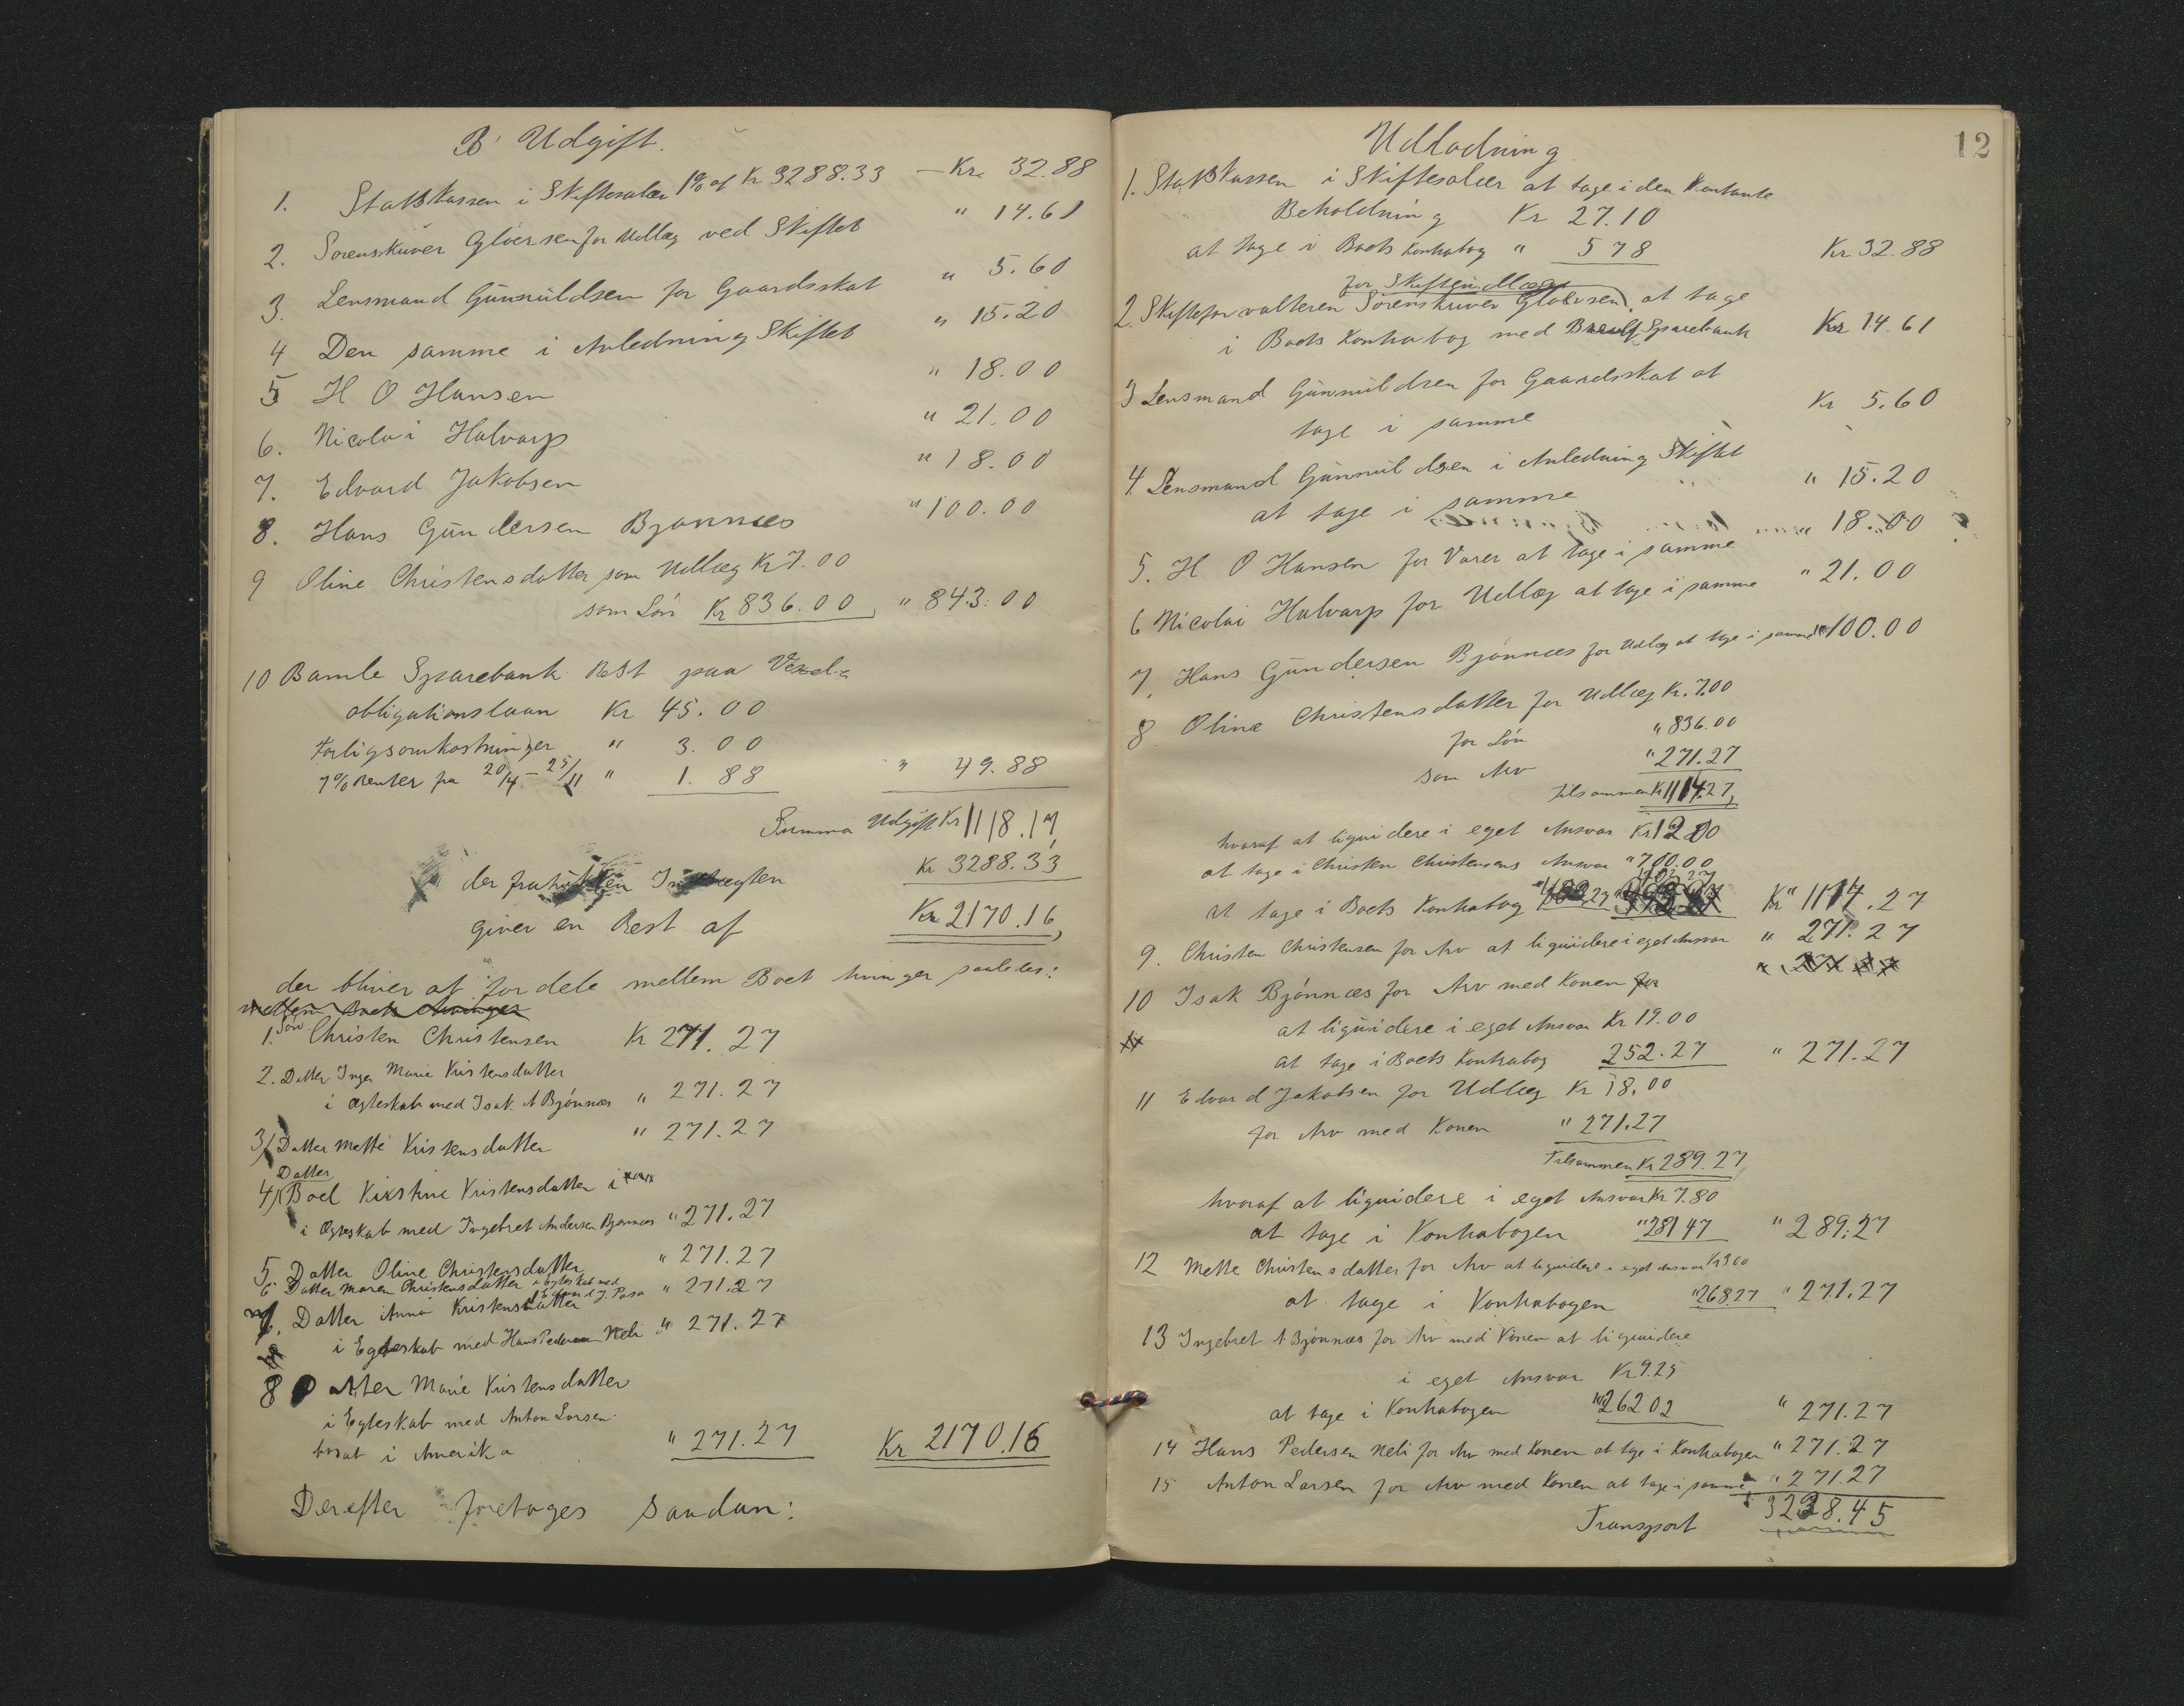 B. Udgift.
1. Statskassen i Skiftesalær 1% af Kr 3288.33 — Kr. 32.88
2. Sorenskriver Gløersen for Udlæg ved Skiftet " 14.61
3. Lensmand Gunnuldsen for Gaardsskat " 5.60
4 Den samme i Anledning Skiftet " 15.20
5 H O Hansen " 18.00
6. Nicolai Halvarp " 21.00
7. Edvard Jakobsen " 18.00
8. Hans Gundersen Bjønnæs " 100.00
9 Oline Christensdatter som Udlæg Kr 7.00
som Løn Kr 836.00, " 843.00
10 Bamle Sparebank Rest paa Vexel-
obligationslaan Kr 45.00
Forligsomkostninger " 3.00
7% renter fra 20/4 – 25/11 " 1.88 " 49.88
Summa Udgift Kr 1118.17,
der fratrukken Indtægten Kr 3288.33
giver en Rest af Kr 2170.16,
der bliver at fordele mellem Boet hvinger saaledes:
mellem Boets Arvinger
1. Søn Christen Christensen Kr 271.27
2. Datter Inger Marie Kristensdatter
i Ægteskab med Isak A Bjønnæs " 271.27
3/ Datter Mette Kristensdatter " 271.27
Datter
4) Boel Kirstine Kristensdatter i
i Ægteskab med Ingebret Andersen Bjønnæs " 271.27
5 Datter Oline Christensdatter " 271.27
6 Datter Maren Christensdatter i Egteskab med Edvard J. " 271.27
7. Datter Anna Kristensdatter
i Egteskab med Hans Pedersen Neli " 271.27
8 Datter Marie Kristensdatter
i Egteskab med Anton Larsen
bosat i Amerika " 271.27 Kr 2170.16
Derefter foretages saadan:
12
Udlodning
1. Statskassen i Skiftesalær at tage i den Kontante
Beholdning Kr 27.10
at tage i Boets Kontrabog " 5 78 Kr 32.88
for Skifteudlæg
2. Skifteforvalteren Sorenskriver Gloersen, at tage
i Boets Kontrabog med Sparebank Kr 14.61
3 Lensmand Gunnuldsen for Gaardsskat at
tage i samme Kr 5.60
4. Lensmand Gunnuldsen i Anledning Skiftet
at tage i samme " 15.20
5. H O Hansen for Varer at tage i samme " 18.00
6 Nicolai Halvarp for Udlæg at tage i samme " 21.00
7, Hans Gundersen Bjønnæs for Udlæg at tage i samme " 100.00
8 Oline Christensdatter for Udlæg Kr. 7.00
for Løn " 836.00
som Arv " 271.27
tilsammen Kr 1114.27,
hvoraf at liquidere i eget Ansvar Kr 12 00
at tage i Christen Christensens Ansvar " 700.00
402.27
at tage i Boets Kontrabog Kr " 1114.27
9. Christen Christensen for Arv at liquidere i eget Ansvar " 271.27
10 Isak Bjønnæs for Arv med Konen for
at liquidere i eget Ansvar Kr 19.00
at tage i Boets Kontrabog 252.27 " 271.27
11 Edvard Jakobsen for Udlæg Kr 18.00
for Arv med Konen " 271.27
Tilsammen Kr 289.27,
hvoraf at liquidere i eget Ansvar Kr 7.80
at tage i Kontrabogen " 281 47 " 289.27
12 Mette Christensdatter for Arv at liquidere i eget Ansvar Kr 3.00
at tage i Kontrabogen " 268.27 " 271.27
13 Ingebret A Bjønnæs for Arv med Konen at liquidere
i eget Ansvar Kr 9.25
at tage i Kontrabogen " 262 02 " 271.27
14 Hans Pedersen Neli for Arv med Konen at tage i Kontrabogen " 271.27
15 Anton Larsen for Arv med Konen at tage i samme " 271.27
Transport 3238.45